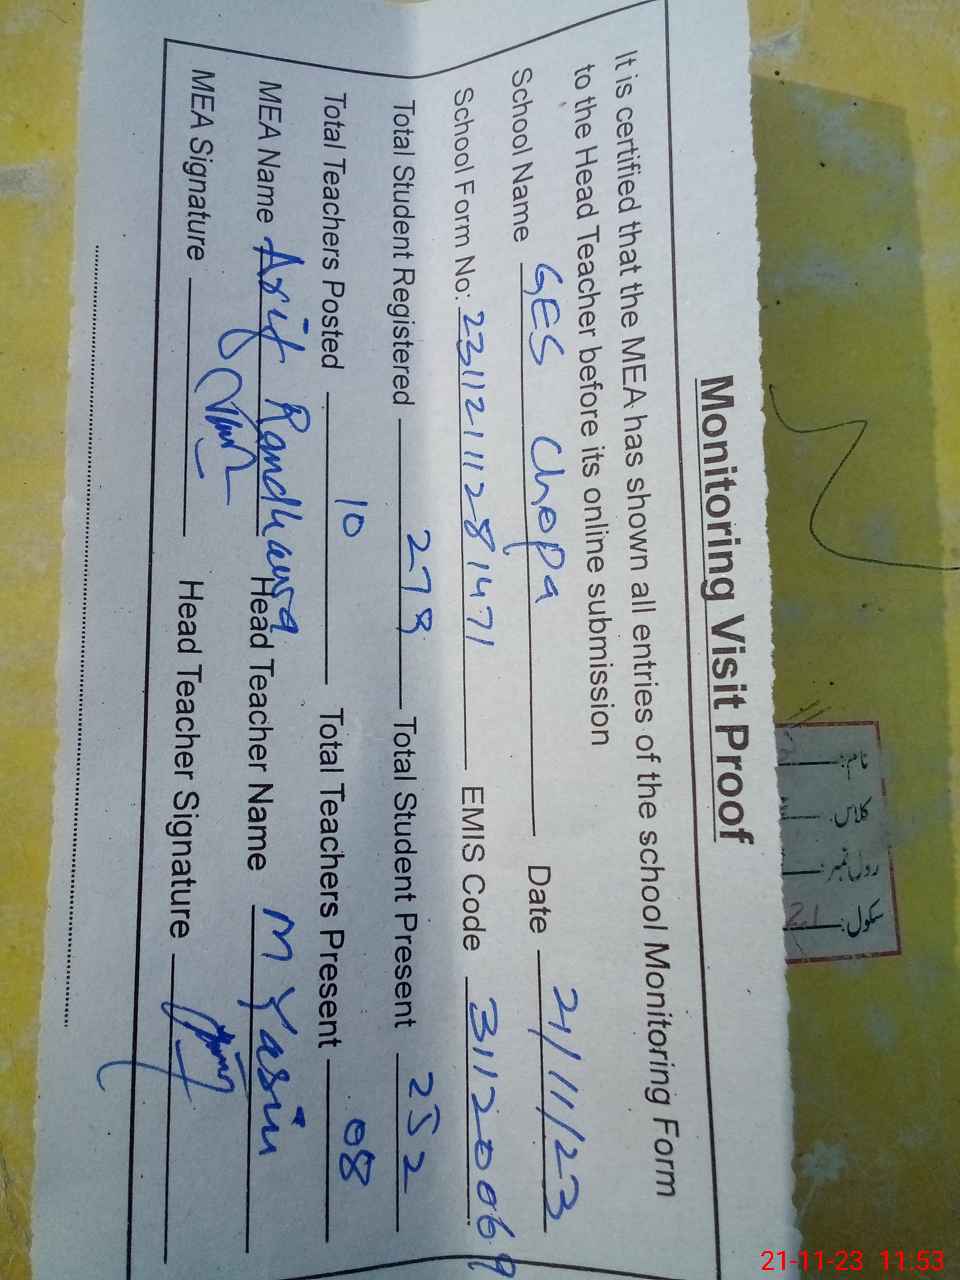 Monitoring Visit Proof
It is certified that the MEA has shown all entries of the school Monitoring Form
to the Head Teacher before its online submission
School Name GES Chopa Date 21/11/23
School Form No: 23112111281471 EMIS Code 31120069
Total Student Registered 279 Total Student Present 252
Total Teachers Posted 10 Total Teachers Present 08
MEA Name Arif Randhawa Head Teacher Name M Yasin
MEA Signature Head Teacher Signature
نام:
کلاس:
رول نمبر:
سکول:
21-11-23 11:53